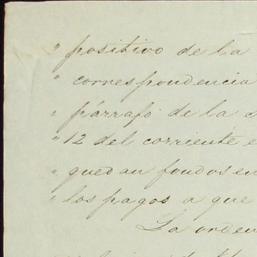 " positivo de la
" correspondencia
" párrafo de la
" 12 del corriente
" quedan fondos en
" los pagos a que
La orden